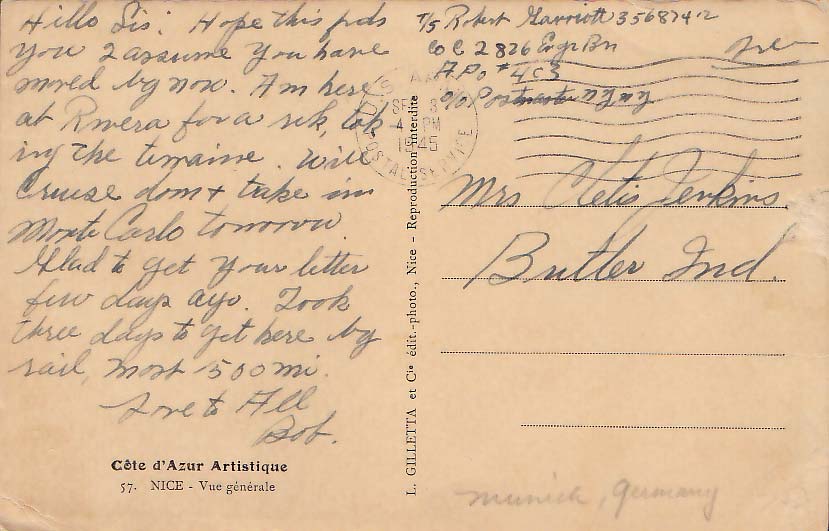 Hello Sis: Hope this finds
you I assume you have
moved by now. Am here
at Rivera for a rest, look
ing the terraine. Will
Cruise down & take in
Monte Carlo tomorrow.
Glad to get your letter
few days ago. Took
three days to get here by
rail, most 500 mi.
Love to All
Bob.
Côte d'Azur Artistique
57. NICE - Vue générale
L. GILLETTA et Cie édit.-photo., Nice - Reproduction interdite
T/5 Robert Marriott 35687412
Co C 2826 Engr Bn
A.P.O #403
c/o Postmaster N.Y. N.Y.
Free
U.S. ARMY
SEP 3
4 PM
1945
POSTAL SERVICE
Mrs Cletis Jenkins.
Butler Ind.
Munich, Germany